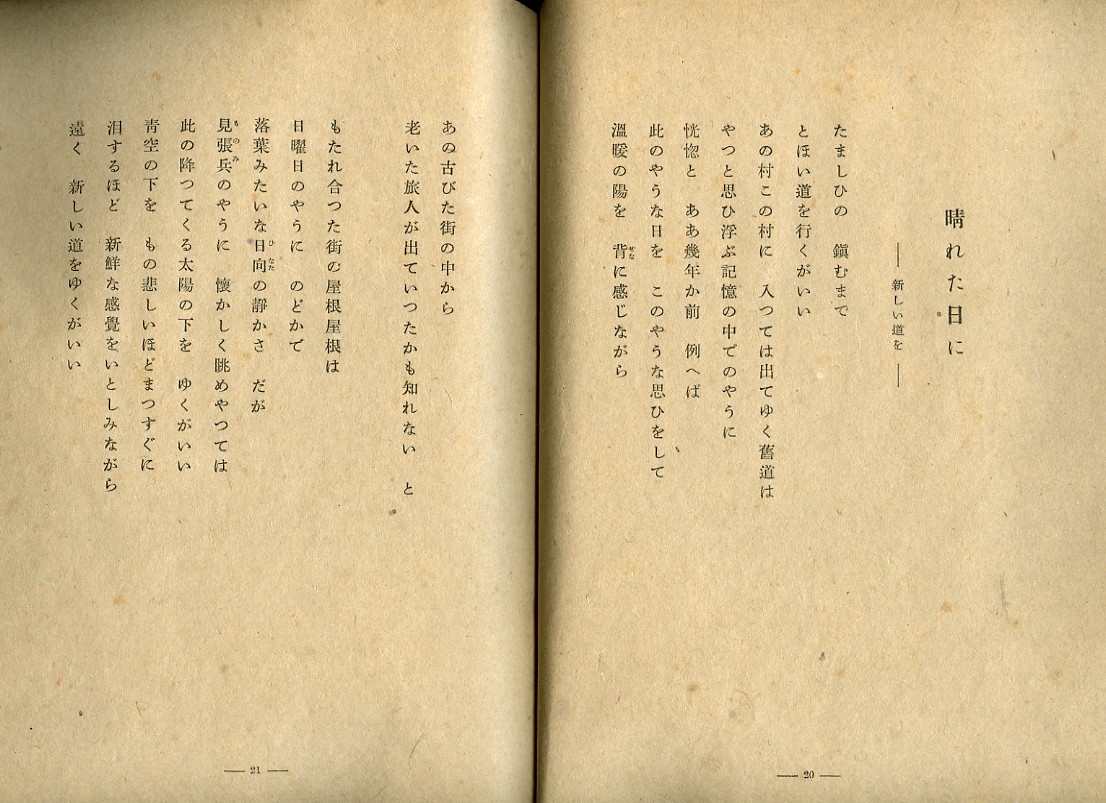 晴れた日に
―― 新しい道を ――
たましひの　鎭むまで
とほい道を行くがいい
あの村この村に　入つては出てゆく舊道は
やつと思ひ浮ぶ記憶の中でのやうに
恍惚と　ああ幾年か前　例へば
此のやうな日を　このやうな思ひをして
溫暖の陽を　背に感じながら
せな
― 20 ―
あの古びた街の中から
老いた旅人が出ていつたかも知れない　と
もたれ合つた街の屋根屋根は
日曜日のやうに　のどかで
落葉みたいな日向の靜かさ　だが
ひなた
見張兵のやうに　懷かしく眺めやつては
ものみ
此の降つてくる太陽の下を　ゆくがいい
靑空の下を　もの悲しいほどまつすぐに
泪するほど　新鮮な感覺をいとしみながら
遠く　新しい道をゆくがいい
― 21 ―